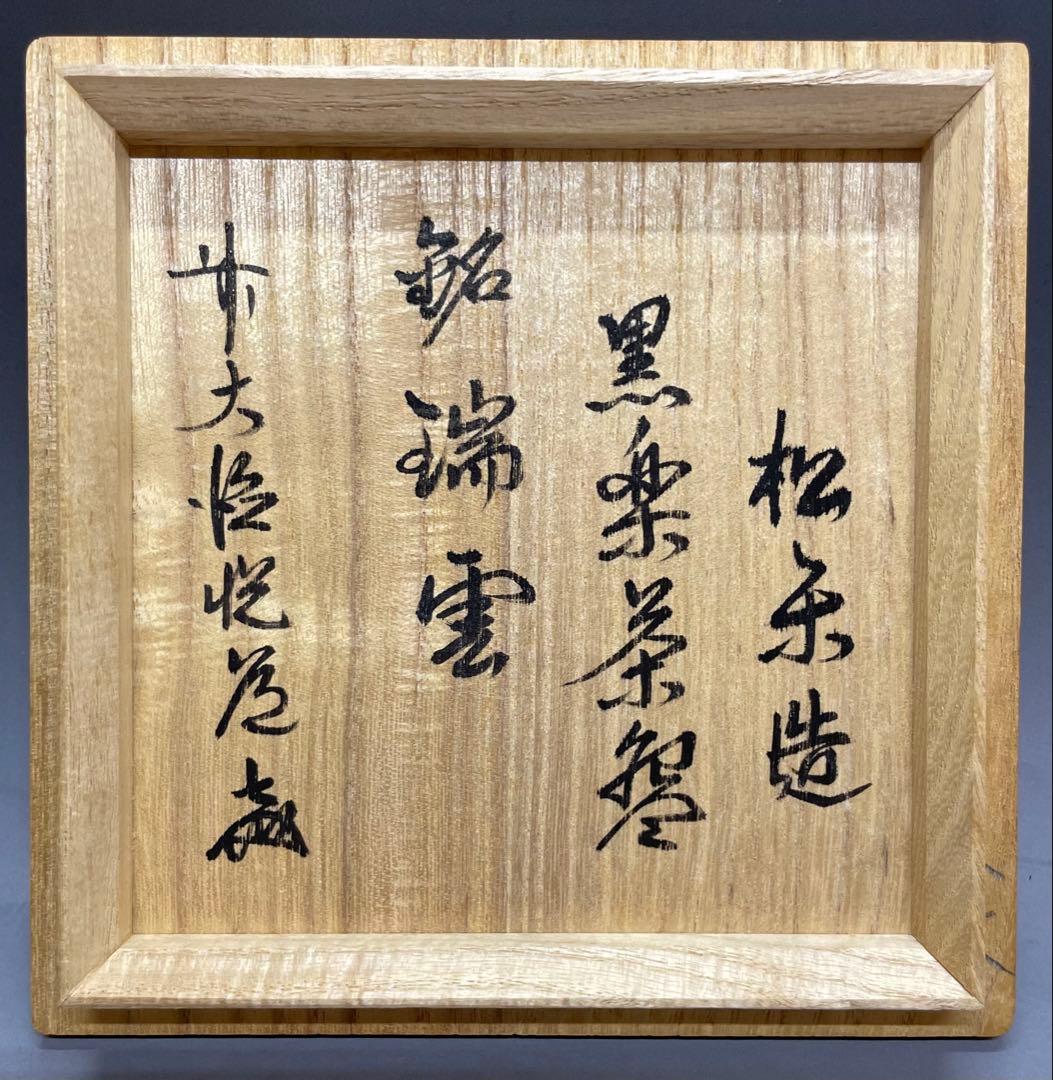 松楽造
黒楽茶盌
銘瑞雲
前大徳悦道